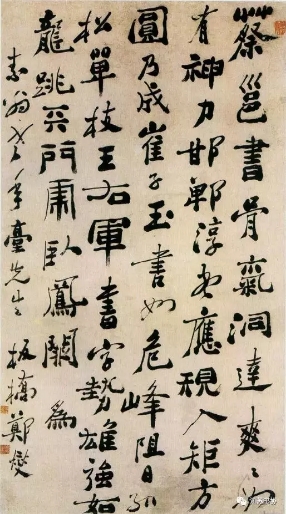 蔡邕書骨氣洞達爽爽如
有神力邯鄲淳書應規入矩方
圓乃成崔子玉書如危峰阻日孤
松單枝王右軍書字勢雄強如
龍跳天門虎臥鳳闕為
素翁老年臺先生 板橋鄭燮